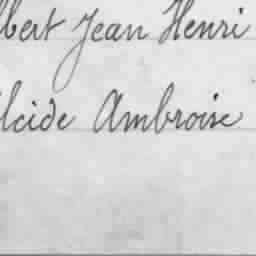 lbert Jean Henri
lcide Ambroise